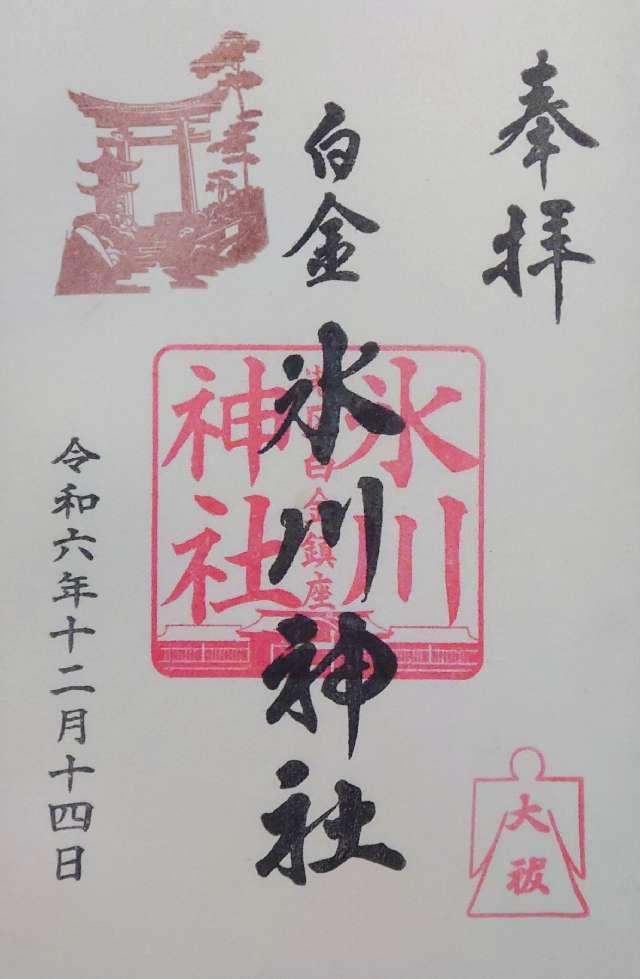 奉拝
白金
氷川神社
氷川
神社
白金鎮座
令和六年十二月十四日
大祓